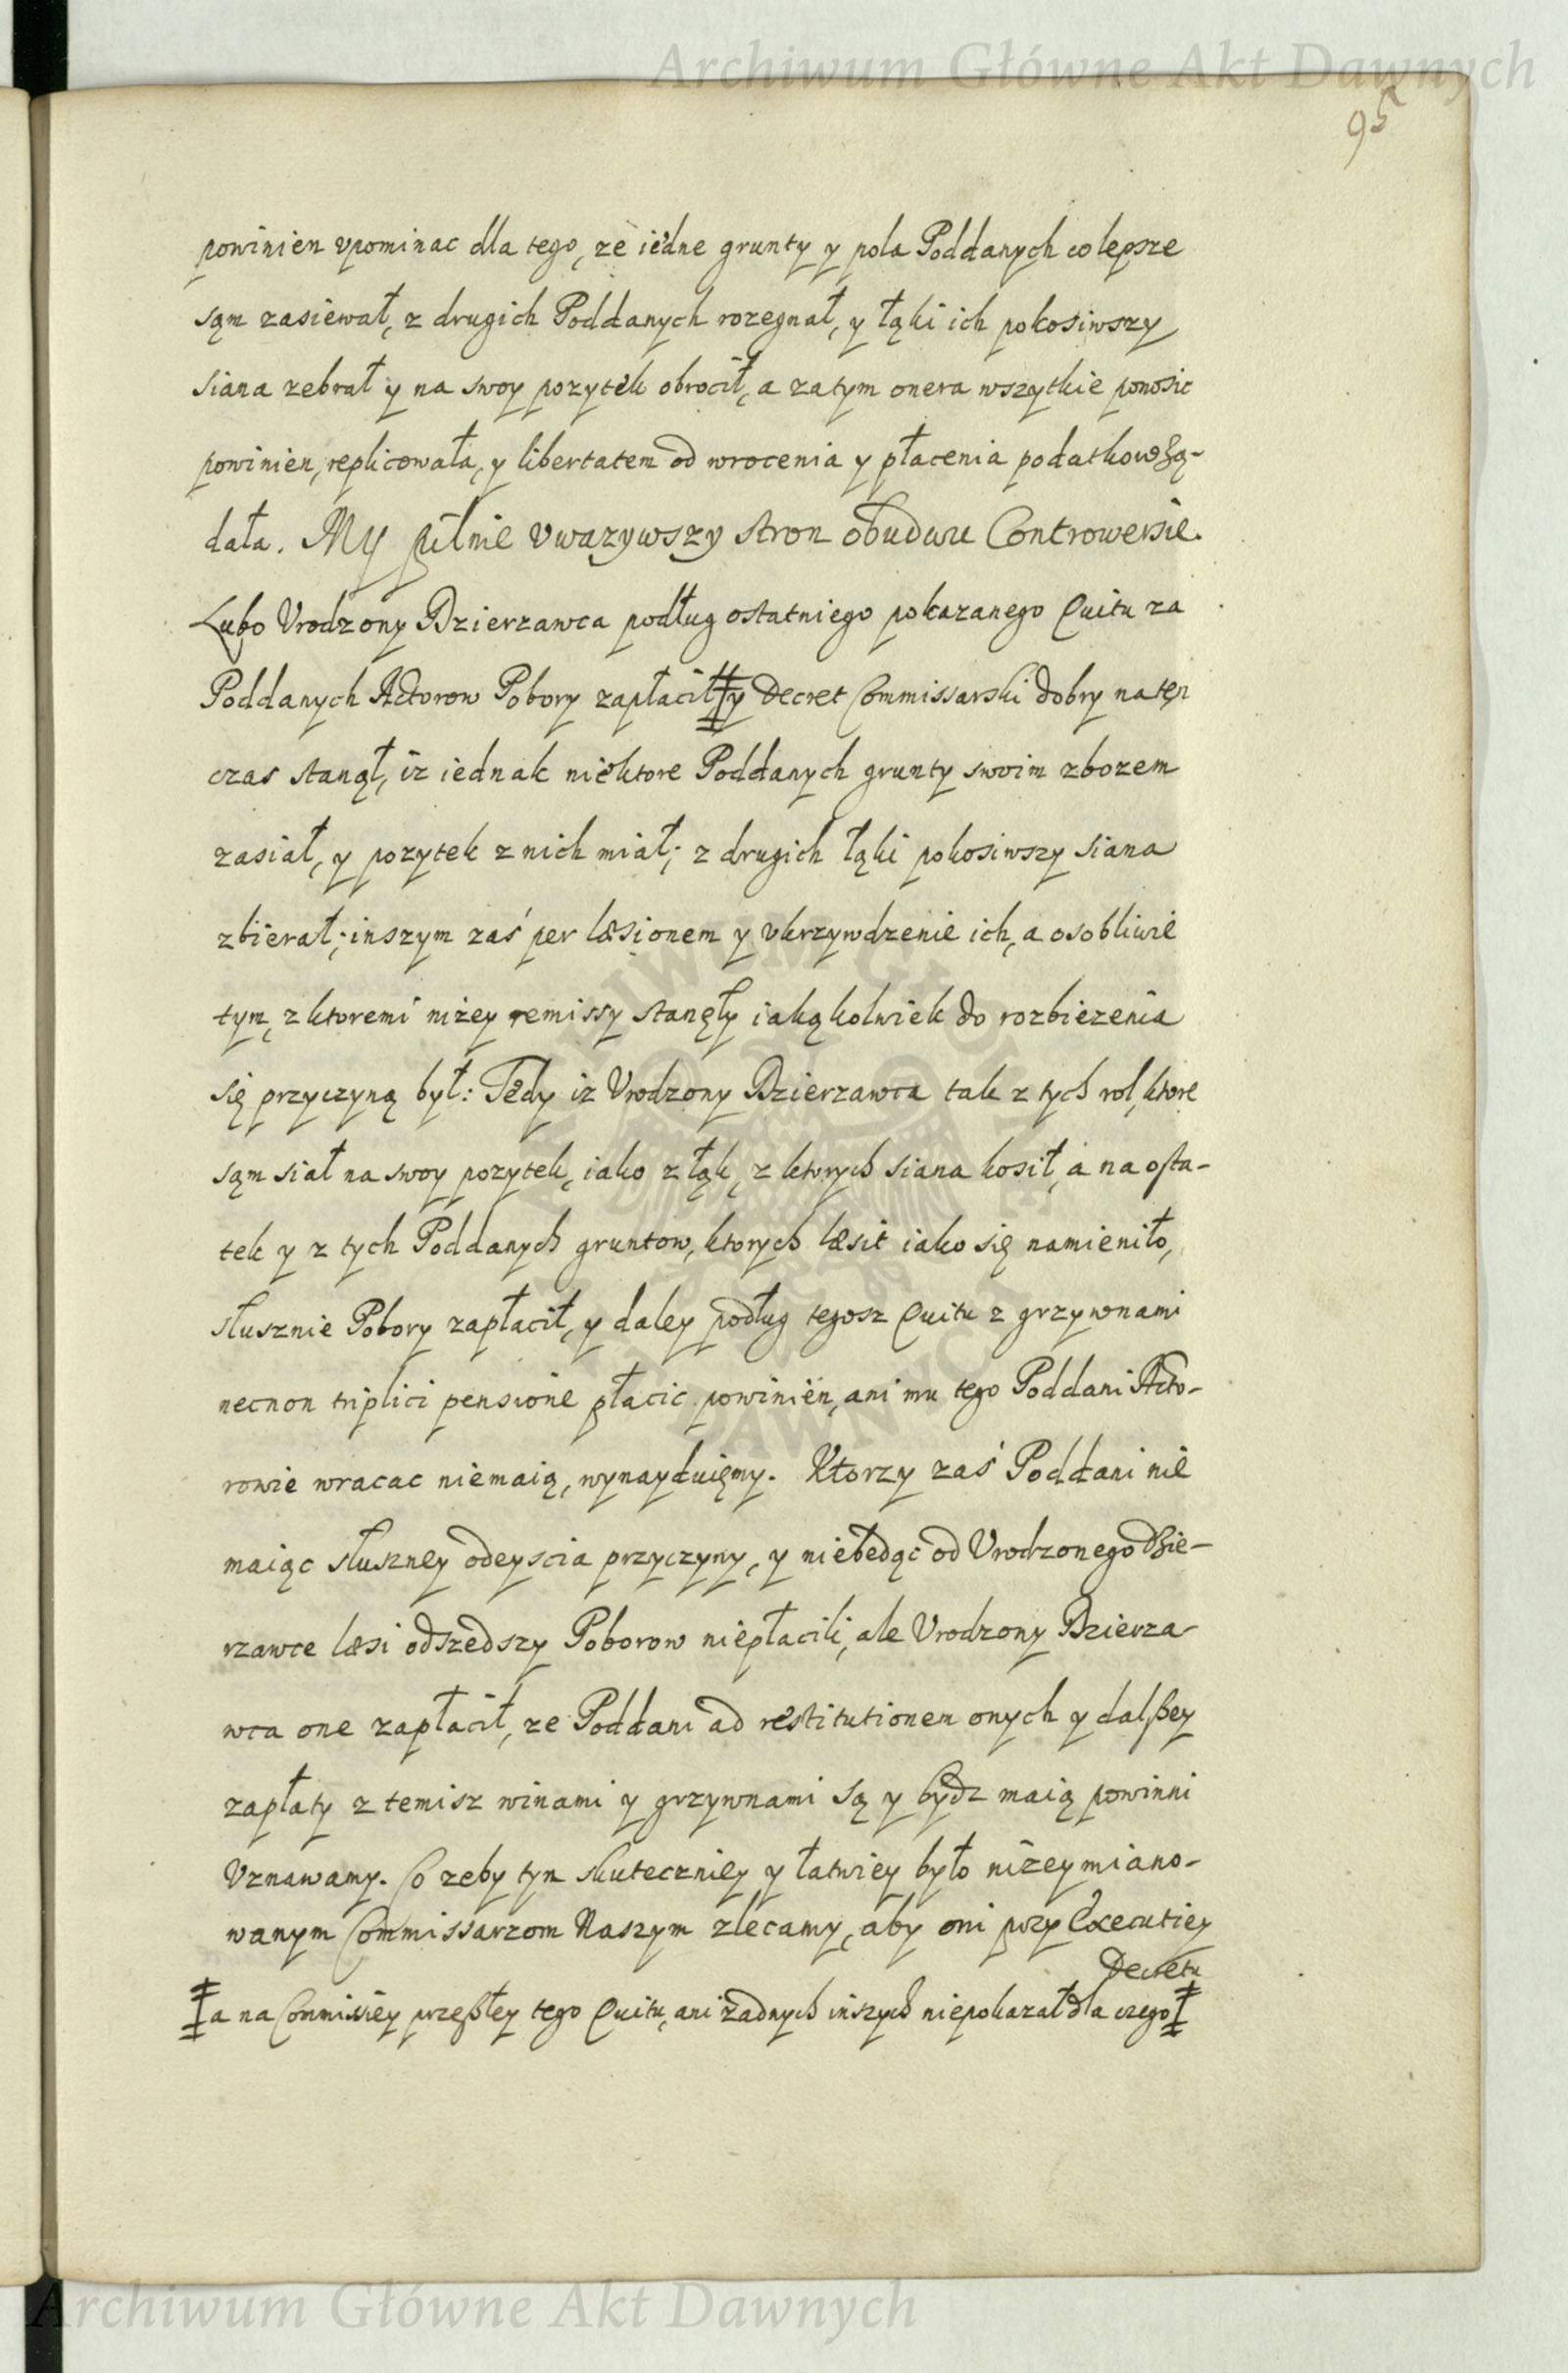 Archiwum Główne Akt Dawnych
95
powinien vpominac dla tego, ze iedne grunty y pola Poddanych co lepsze
sąm zasiewał, z drugich Poddanych rozegnał, y łąki ich pokosiwszy
siana zebrał y na swoy pozytek obrocił, a zatym onera wszytkie ponosic
powinien, replicowała, y libertatem od wrocenia y płacenia podatkow ßą-
dała. My pilnie vwazywszy stron obudwu Controwersie.
Lubo Vrodzony Dzierzawca podług ostatniego pokazanego Quitu za
Poddanych Actorow Pobory zapłacił ‡ y Decret Commissarski dobry na ten
czas stanął, iz iednak niektore Poddanych grunty swoim zbozem
zasiał, y pozytek z nich miał; z drugich łąki pokosiwszy siana
zbierał; inszym zaś per læsionem y vkrzywdzenie ich, a osobliwie
tym, z ktoremi nizey remissy stanęły iakąkolwiek do rozbiezenia
się przyczyną był: Tedy iz Vrodzony Dzierzawca tak z tych rol, ktore
sąm siał na swoy pozytek, iako z łąk, z ktorych siana kosił, a na osta-
tek y z tych Poddanych gruntow, ktorych læsit iako się namieniło,
słusznie Pobory zapłacił, y daley podług tegosz Quitu z grzywnami
necnon triplici pensione płacic powinien, ani mu tego Poddani Acto-
rowie wracac niemaią, wynayduięmy. Ktorzy zaś Poddani nie
maiąc słuszney odeyscia przyczyny, y niebędąc od Vrodzonego Dzie-
rzawce læsi odszedszy Poborow niepłacili, ale Vrodzony Dzierza-
wca one zapłacił, ze Poddani ad restitutionem onych y dalßey
zapłaty z temisz winami y grzywnami są y bydz maią powinni
Vznawamy. Co zeby tym skuteczniey y łatwiey było nizey miano-
wanym Commissarzom Naszym zlecamy, aby oni przy Executiey
Decretu
‡ a na Commissiey przeßłey tego Quitu, ani żadnych inszych niepokazał dla czego ‡
Archiwum Główne Akt Dawnych